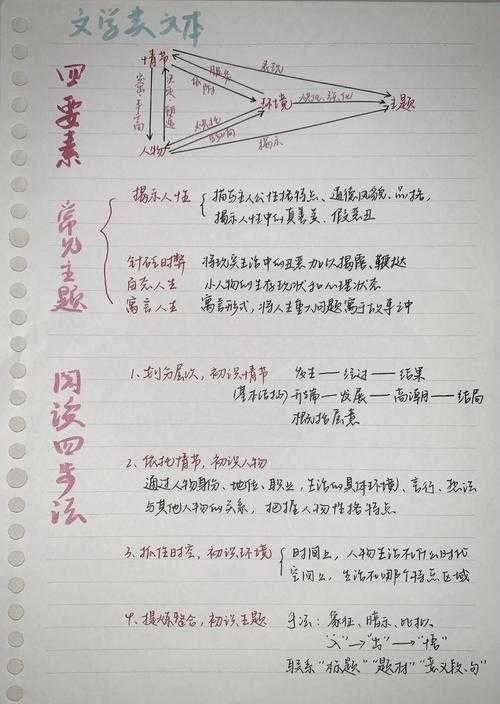 文学类文本
四要素
情节
表现
服务
依附
环境
烘托、强化
主题
人物
揭示
常见主题
揭示人性 描写主人公性格特点、道德风貌、品格,
揭示人性中的真善美、假恶丑
针砭时弊 将现实生活中的丑恶加以揭露、鞭挞
百态人生 小人物的生存现状和心理状态
寓言人生 寓言形式,将人生重大问题寓于故事之中
阅读四步法
1、划分层次,初识情节 发生——经过——结果
(基本结构) 开端——发展——高潮——结局
概括层意
2、依托情节,初识人物
通过人物身份、地位、职业,生活的具体环境、言行、想法
与其他人物的关系,把握人物性格特点。
3、抓住时空,初识环境 时间上,人物生活在什么时代
空间上,生活在哪个特点区域
4、提炼整合,初识主题 手法:象征、暗示、比拟、
“入”→“出”→“悟”
联系“标题”“题材”“意义段、句”